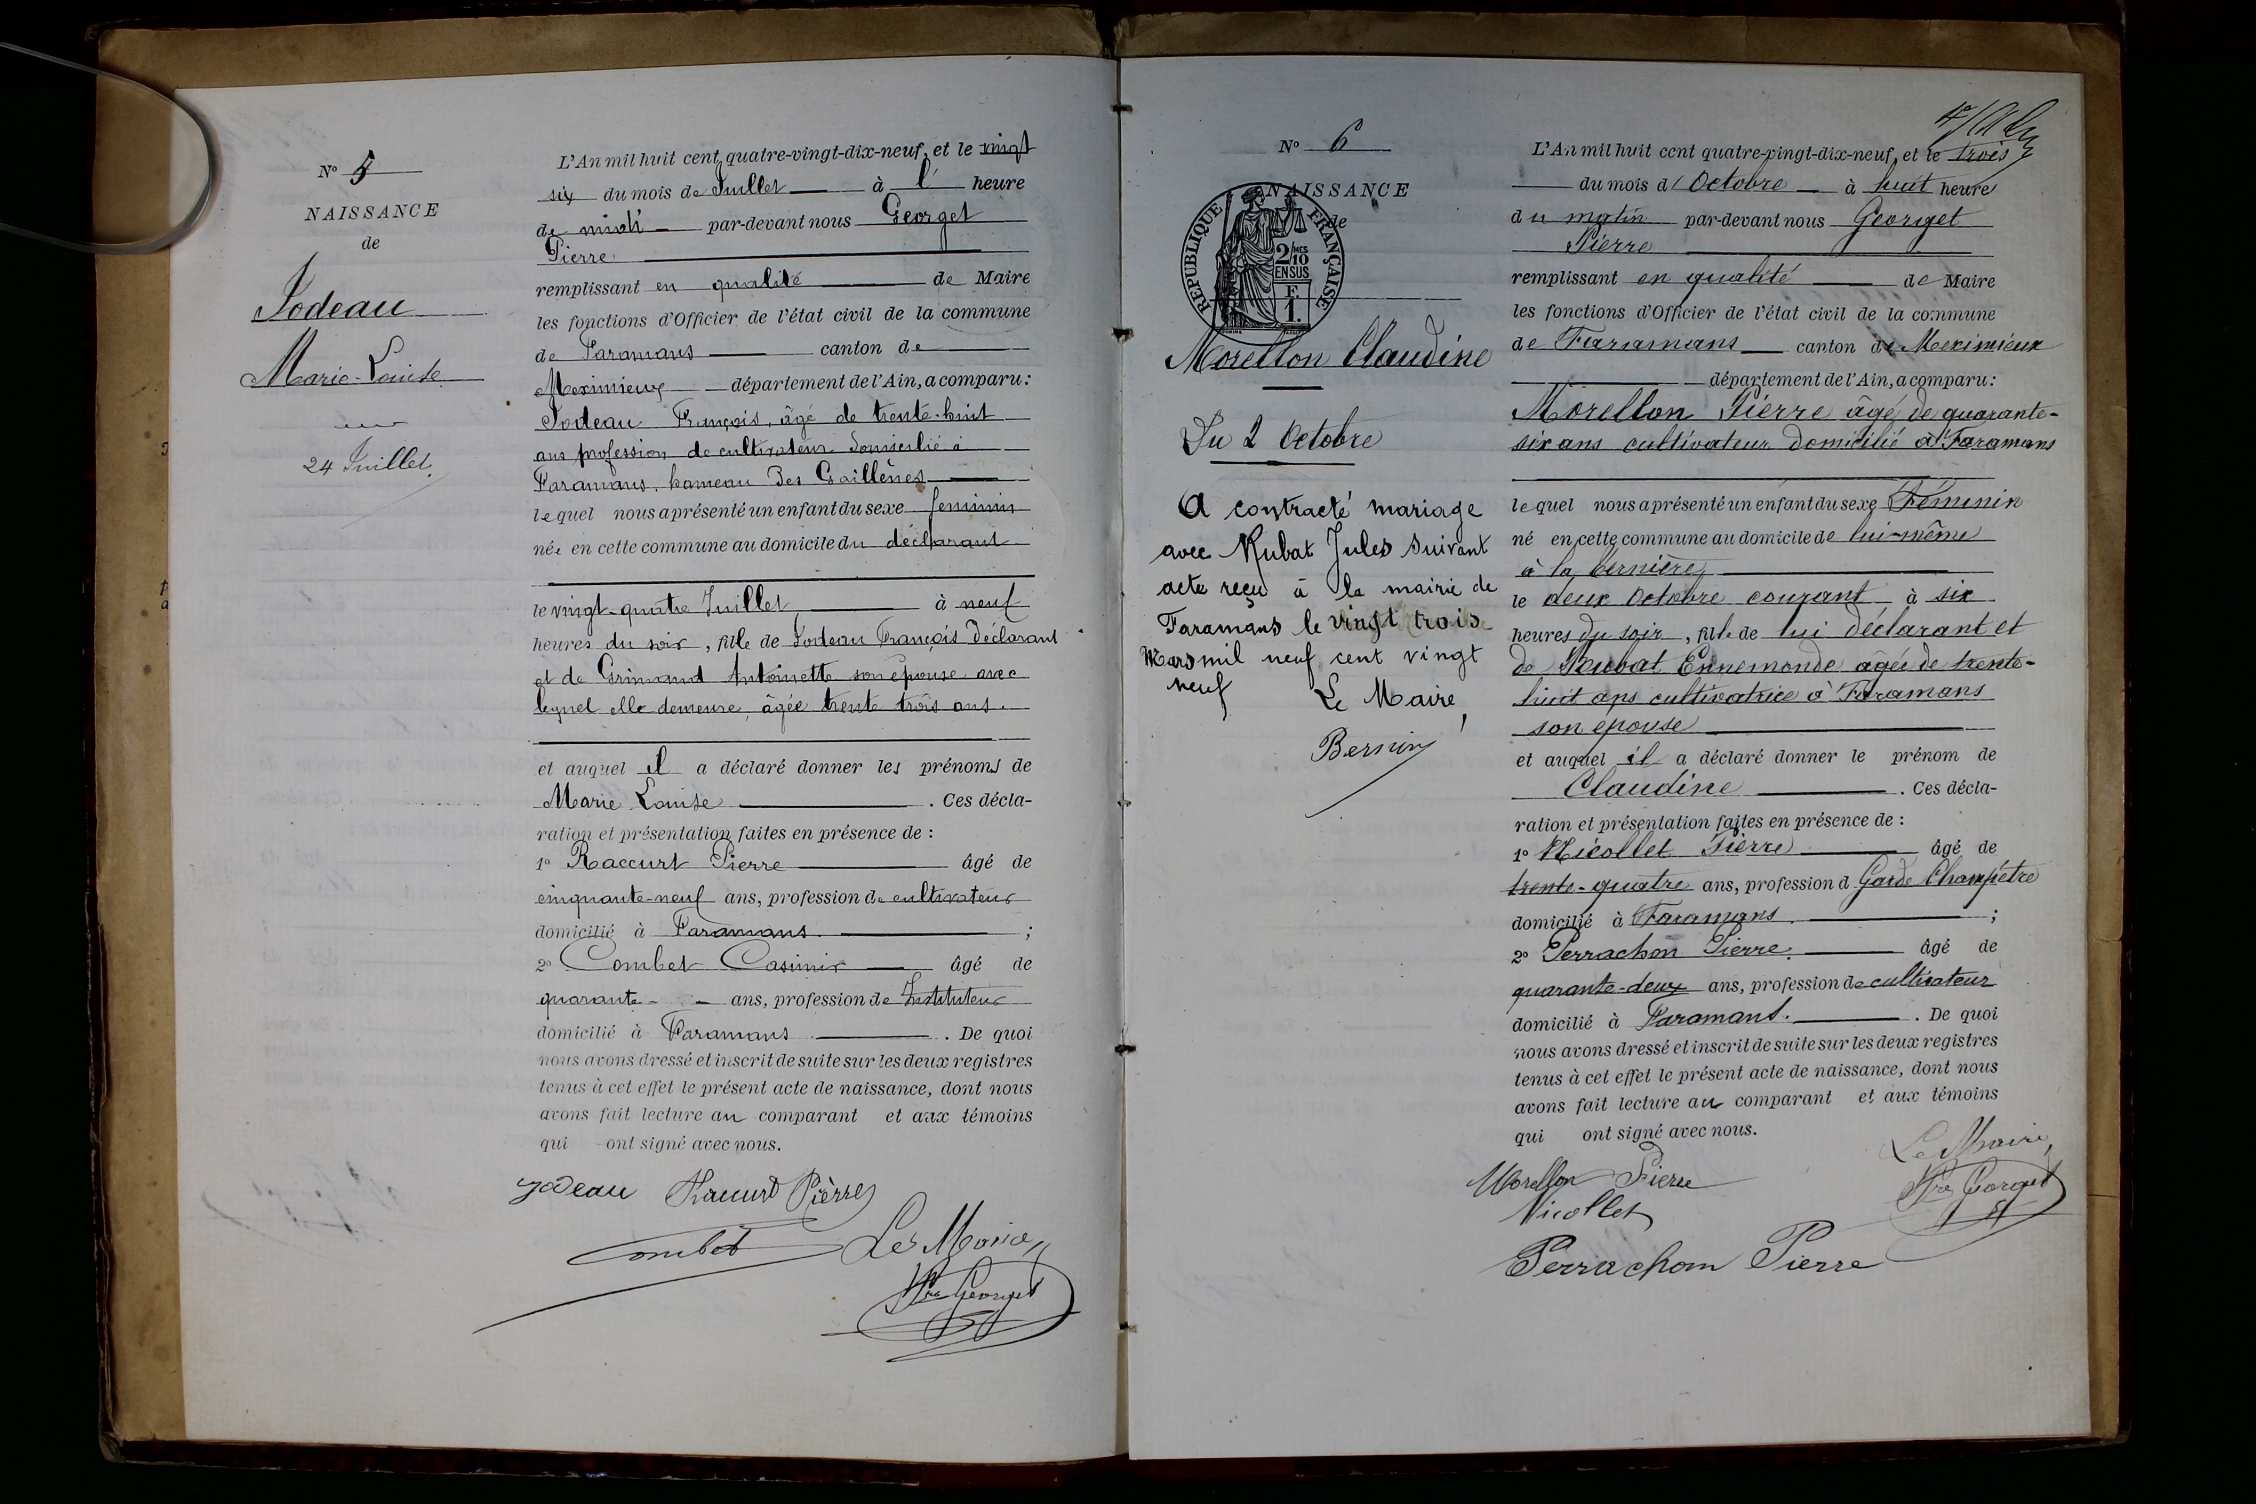 N° 5
NAISSANCE
de
Jodeau
Marie-Louise
du
24 Juillet.
L'An mil huit cent quatre-vingt-dix-neuf, et le vingt
six du mois de Juillet à l' heure
de midi par-devant nous Georget
Pierre
remplissant en qualité de Maire
les fonctions d'Officier de l'état civil de la commune
de Faramans canton de
Meximieux département de l'Ain, a comparu :
Jodeau François, âgé de trente-huit
ans profession de cultivateur domicilié à
Faramans. hameau Des Gaillênes
lequel nous a présenté un enfant du sexe feminin
née en cette commune au domicile du déclarant
le vingt-quatre Juillet à neuf
heures du soir, fille de Jodeau François déclarant
et de Grimand Antoinette son épouse avec
lequel elle demeure, âgée trente trois ans.
et auquel il a déclaré donner les prénoms de
Marie Louise . Ces décla-
ration et présentation faites en présence de :
1° Raccurt Pierre âgé de
cinquante-neuf ans, profession de cultivateur
domicilié à Faramans. ;
2° Combet Casimir âgé de
quarante- ans, profession de Instituteur
domicilié à Faramans . De quoi
nous avons dressé et inscrit de suite sur les deux registres
tenus à cet effet le présent acte de naissance, dont nous
avons fait lecture au comparant et aux témoins
qui ont signé avec nous.
Jodeau Raccurt Pierre
Combet Le Maire
Pre Georget
N° 6
NAISSANCE
de
RÉPUBLIQUE FRANÇAISE
2/10 MES
EN SUS
F.
1.
Morellon Claudine
Du 2 Octobre
A contracté mariage
avec Rubat Jules suivant
acte reçu à la mairie de
Faramans le vingt trois
Mars mil neuf cent vingt
neuf
Le Maire,
Bernin
L'An mil huit cent quatre-vingt-dix-neuf, et le trois
du mois d'Octobre à huit heure
du matin par-devant nous Georget
Pierre
remplissant en qualité de Maire
les fonctions d'Officier de l'état civil de la commune
de Faramans canton de Meximieux
département de l'Ain, a comparu :
Morellon Pierre âgé de quarante-
six ans cultivateur domicilié à Faramans
lequel nous a présenté un enfant du sexe Féminin
né en cette commune au domicile de lui-même
à la bernière
le deux Octobre courant à six
heures du soir, fille de lui déclarant et
de Ennemonde agée de trente-
huit ans cultivatrice à Faramans
son epouse
et auquel il a déclaré donner le prénom de
Claudine . Ces décla-
ration et présentation faites en présence de :
1° Nicollet Pierre âgé de
trente-quatre ans, profession d Garde Champêtre
domicilié à Faramans. ;
2° Perrachon Pierre. âgé de
quarante-deux ans, profession de cultivateur
domicilié à Faramans. . De quoi
nous avons dressé et inscrit de suite sur les deux registres
tenus à cet effet le présent acte de naissance, dont nous
avons fait lecture au comparant et aux témoins
qui ont signé avec nous.
Le Maire,
Morellon Pierre
Pre Georget
Nicollet
Perrachom Pierre